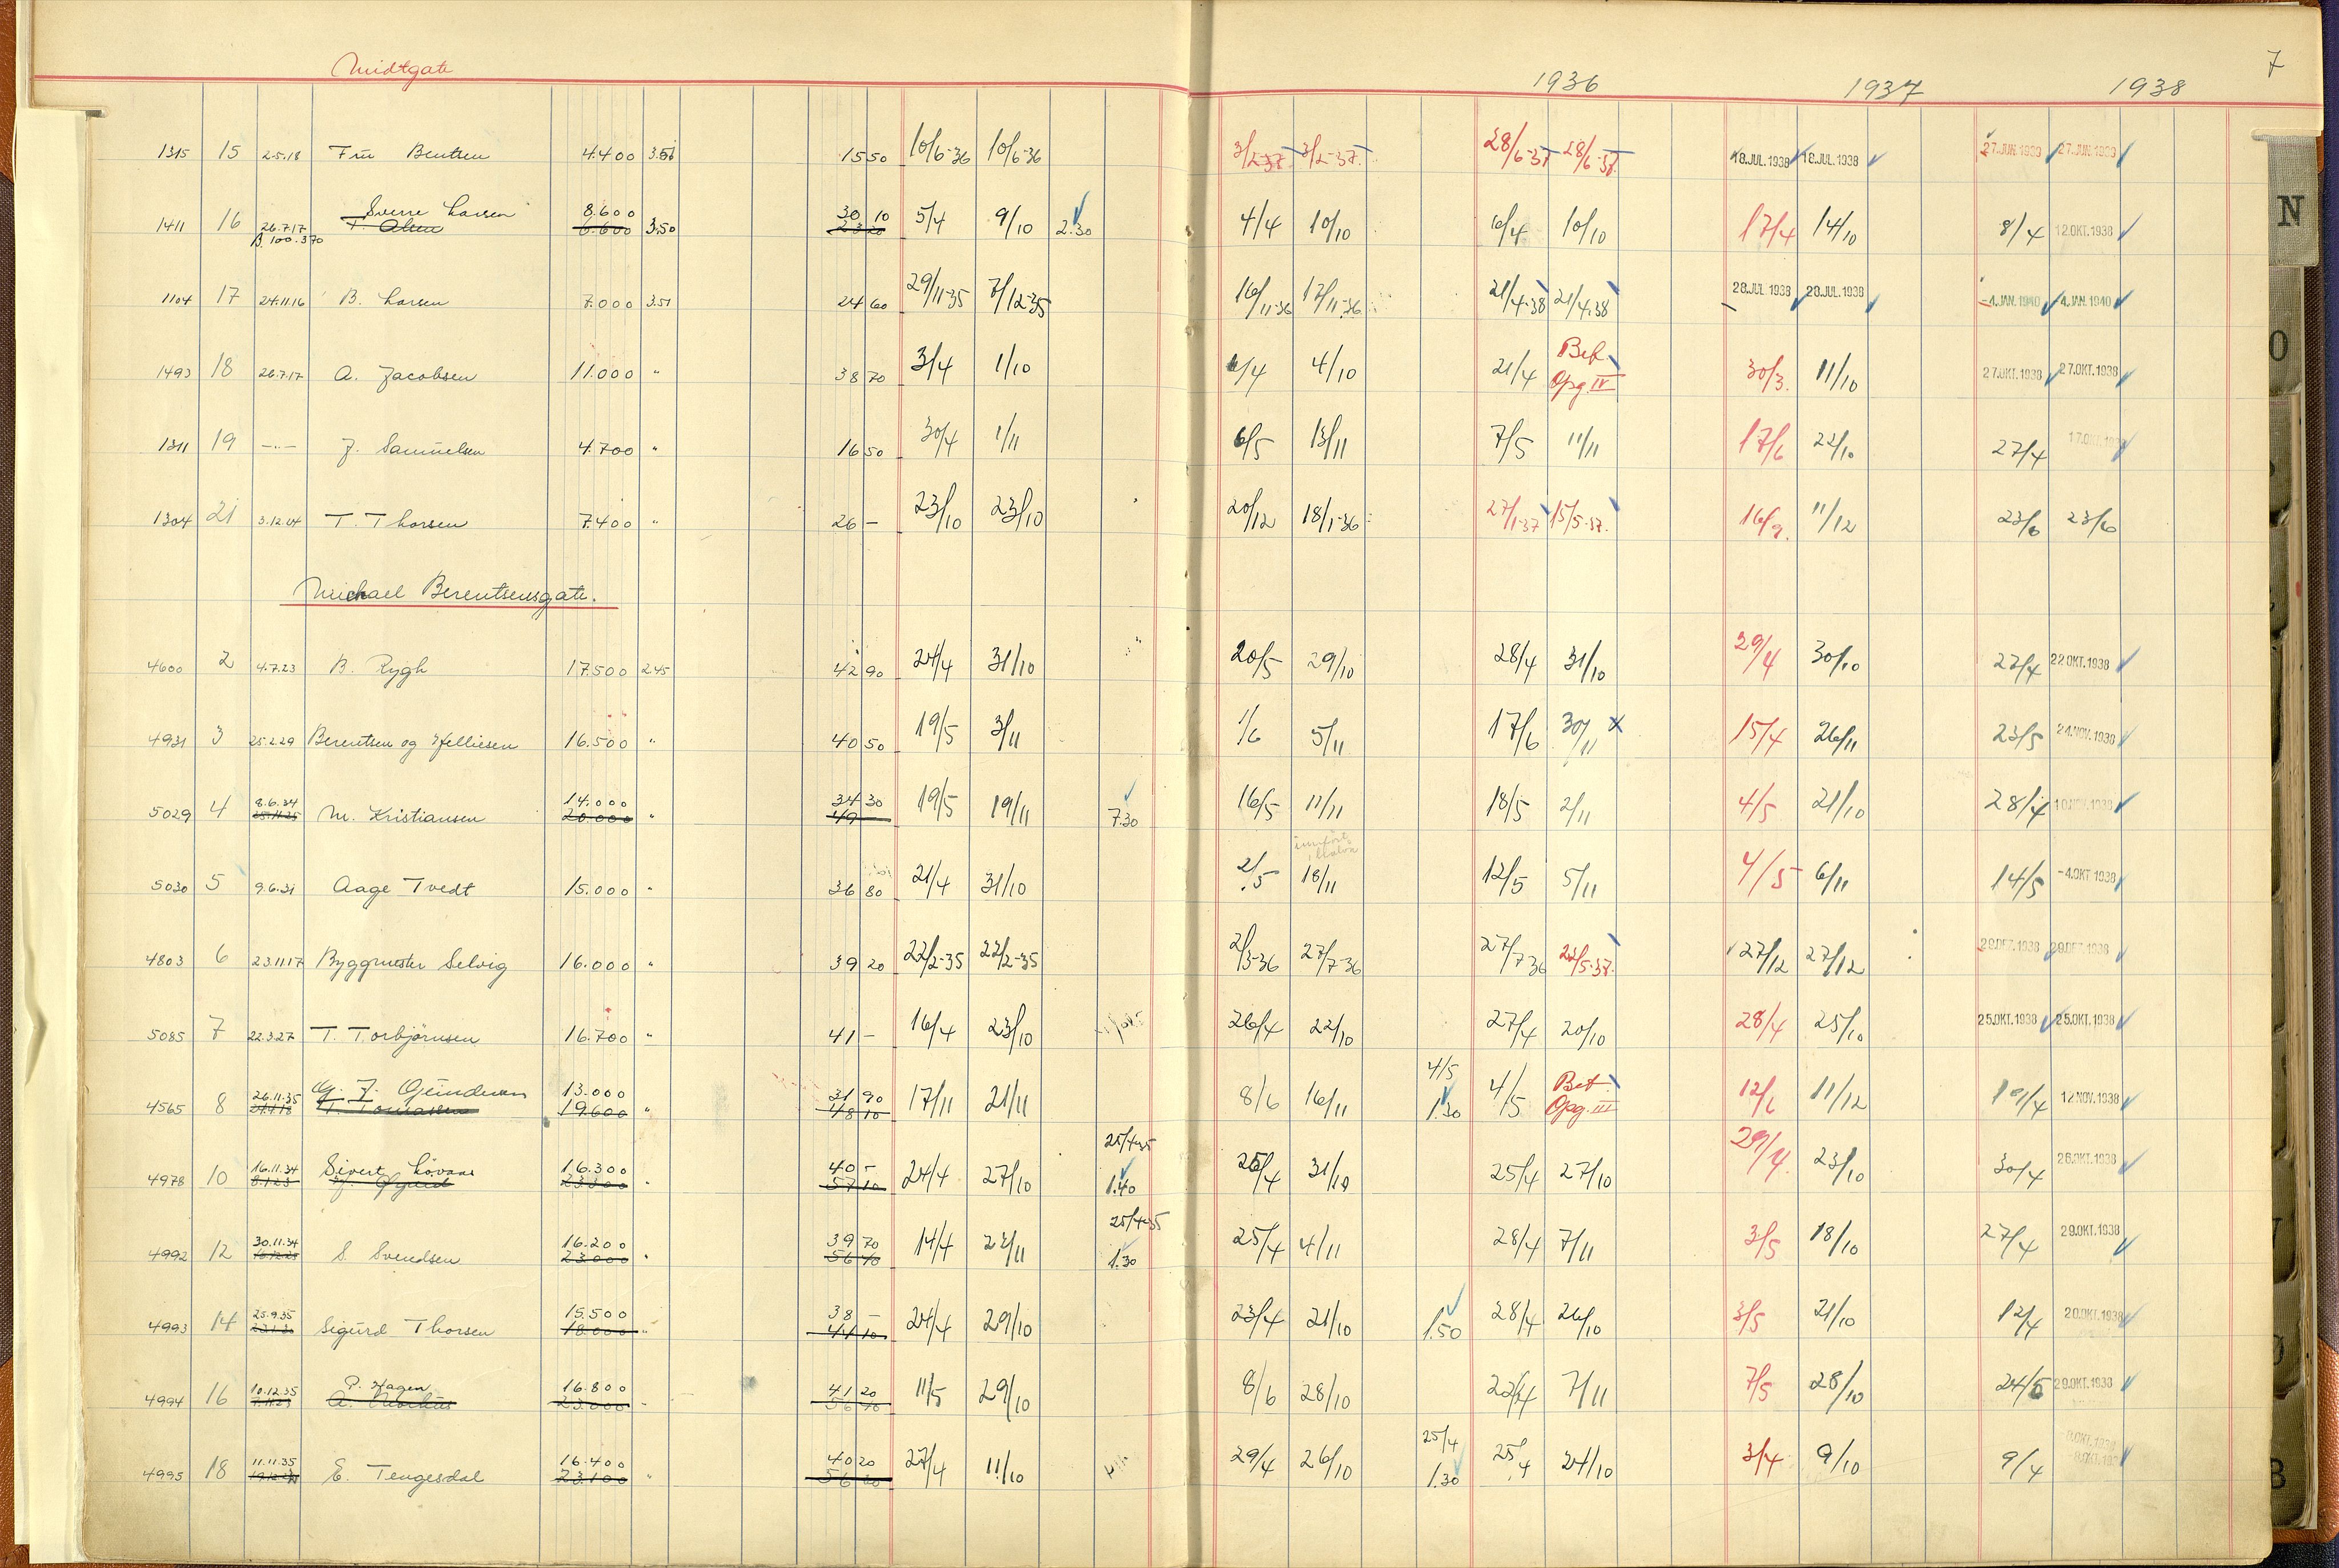 Midtgate 1936 1937 1938 7
1315 15 2.5.18 Fru Bentsen 4.400 3.50 15 50 10/6-36 10/6-36 3/2-37. 3/2-37. 28/6-37 28/6-37. 18.JUL.1938 18.JUL.1938 27.JUN.1939 27.JUN.1939
Sverre Larsen 8.600 30 10
1411 16 26.7.17 T. Olsen 6.600 3.50 23 20 5/4 9/10 2.30 4/4 10/10 6/4 10/10 17/4 14/10 8/4 12.OKT.1938
B. 100.370
1104 17 24.11.16 B. Larsen 7.000 3.51 24 60 29/11-35 7/12-35 16/11-36 17/11-36 21/4-38 21/4.38 28.JUL.1938 28.JUL.1938 -4.JAN.1940 -4.JAN.1940
Bet.
1493 18 26.7.17 A. Jacobsen 11.000 " 38 70 3/4 1/10 4/4 4/10 21/4 Opg. IV 30/3. 11/10 27.OKT.1938 27.OKT.1938
1311 19 —"— J. Samuelsen 4.700 " 16 50 30/4 1/11 6/5 13/11 7/5 11/11 17/6 22/10 27/4 17.OKT.1938
1304 21 3.12.04 T. Thorsen 7.400 " 26 — 23/10 23/10 20/12 18/1-36 27/1-37 15/5-37. 16/9. 11/12 23/6 23/6
Michael Berentsensgate.
4600 2 4.7.23 B. Rygh 17.500 2.45 42 90 24/4 31/10 20/5 29/10 28/4 31/10 29/4 30/10 22/4 22.OKT.1938
4931 3 25.2.29 Berentsen og Helliesen 16.500 " 40 50 19/5 3/11 1/6 5/11 17/6 30/11 x 15/4 26/11 23/5 24.NOV.1938
8.6.34 14.000 34 30
5029 4 25.11.25 M. Kristiansen 20.000 " 49 19/5 19/11 7.30 16/5 11/11 18/5 2/11 4/5 21/10 28/4 10.NOV.1938
5030 5 9.6.31 Aage Tvedt 15.000 " 36 80 21/4 31/10 2/5 18/11 12/5 5/11 4/5 6/11 14/5 -4.OKT.1938
4803 6 23.11.17 Byggmester Selvig 16.000 " 39 20 22/2-35 22/2-35 2/3-36 27/7-36 27/7-36 22/5-37. 27/12 27/12 29.DEZ.1938 29.DEZ.1938
5085 7 22.3.27 T. Torbjørnsen 16.700 " 41 — 16/4 23/10 26/4 22/10 27/4 20/10 28/4 25/10 25.OKT.1938 25.OKT.1938
26.11.35 G. J. Gundersen 13.000 31 90 4/5 Bet.
4565 8 T. Tomassen 19.600 " 48 10 17/11 21/11 8/6 16/11 1.30 4/5 Opg. III 12/6 11/12 19/4 12.NOV.1938
16.11.34 Sivert Lövaas 16.300 40 - 25/4-35
4978 10 8.1.23 23.300 " 57 10 24/4 27/10 1.40 25/4 31/10 25/4 27/10 29/4. 23/10 30/4 26.OKT.1938
30.11.34 16.200 39 70 25/4-35
4992 12 S. Svendsen 23.000 " 56 40 14/4 22/11 1.30 25/4 4/11 28/4 7/11 3/5 18/10 27/4 29.OKT.1938
25.9.35 15.500 38 —
4993 14 Sigurd Thorsen 18.000 " 44 10 24/4 29/10 23/4 21/10 1.50 28/4 26/10 3/5 21/10 12/4 20.OKT.1938
10.12.35 P. Hagen 16.800 41 20
4994 16 7.11.23 23.000 - 56 40 11/5 29/10 8/6 28/10 22/4 7/11 7/5 28/10 24/5 29.OKT.1938
11.11.35 16.400 40 20 25/4
4995 18 E. Tengesdal 23.100 " 56 60 27/4 11/10 29/4 26/10 1.30 25/4 24/10 3/4 9/10 9/4